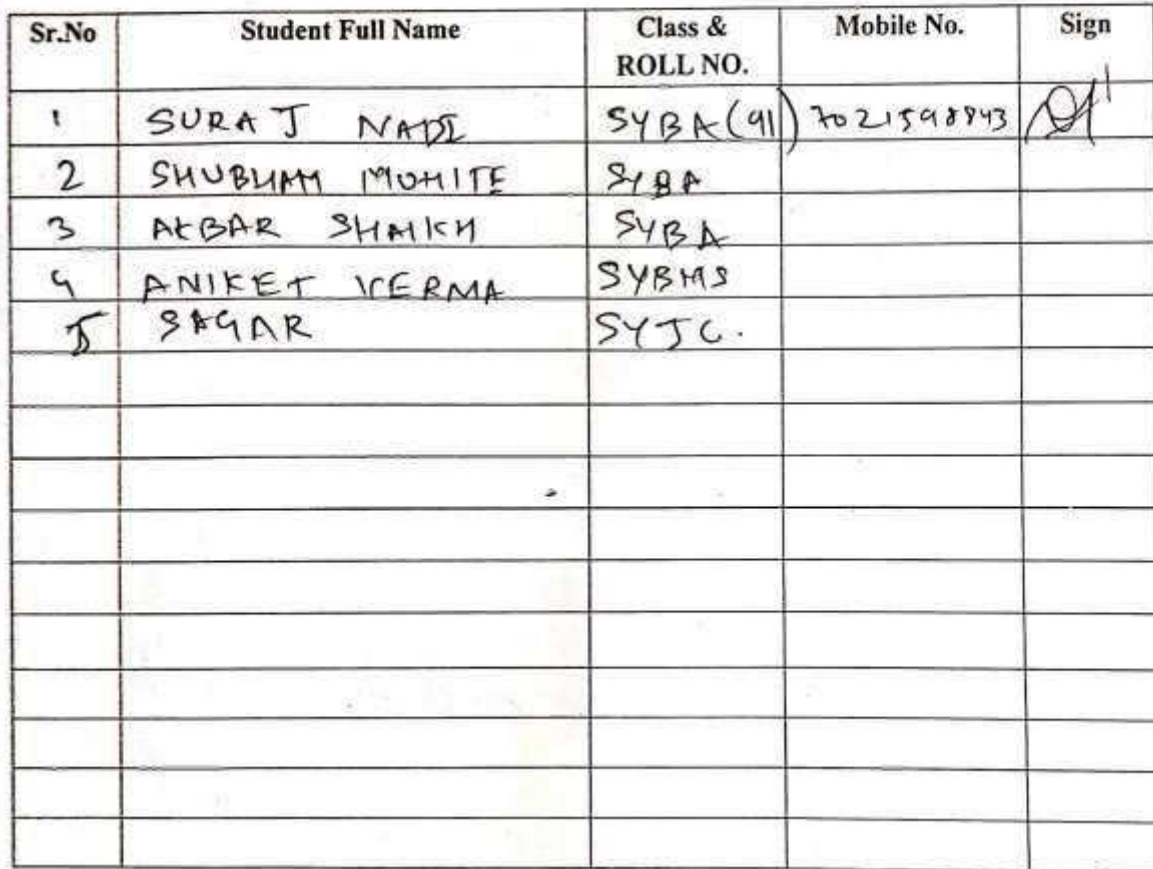 Sr.No Student Full Name Class & ROLL NO. Mobile No. Sign
1 SURAJ NADI SYBA (91) 7021598843
2 SHUBHAM MOHITE SYBA
3 AKBAR SHAIKH SYBA
4 ANIKET VERMA SYBMS
5 SAGAR SYJC.